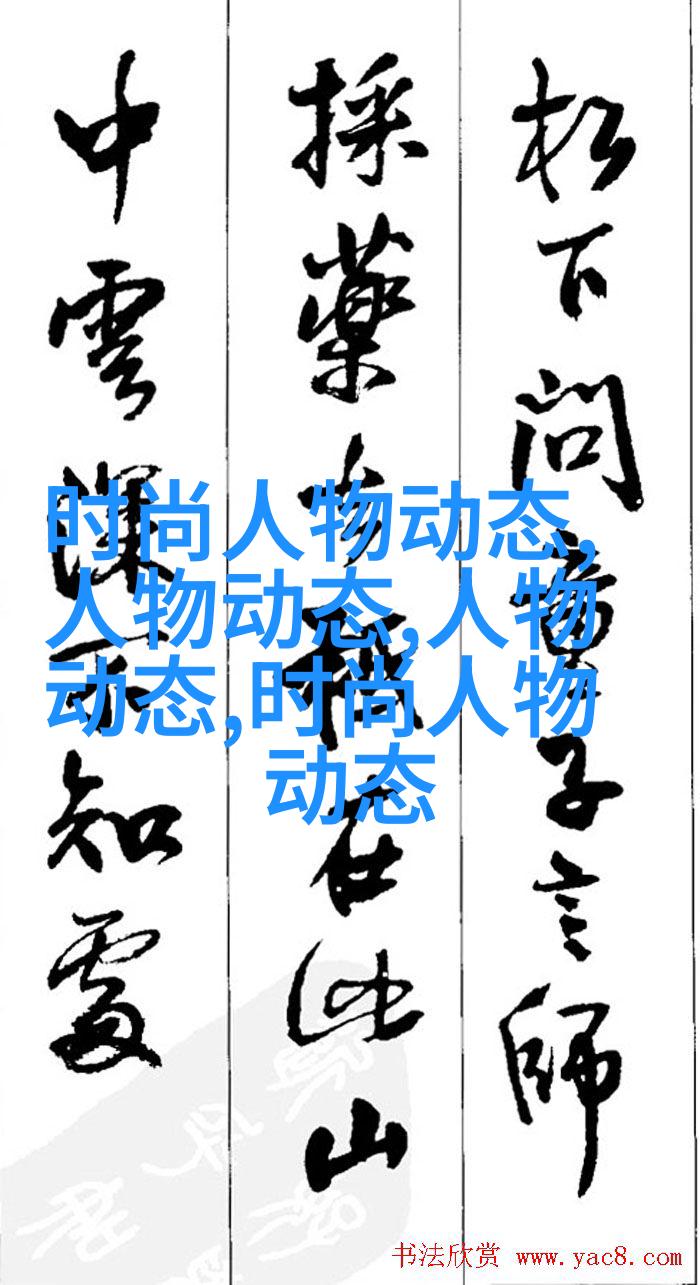 松下问童子言師
採藥去在此山
中雲深不知處
时尚人物动态,
人物动态,人物
动态,时尚人物
动态
书法欣赏 www.yac8.com